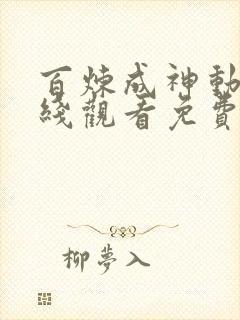 百炼成神動
綫觀看免費
柳夢入